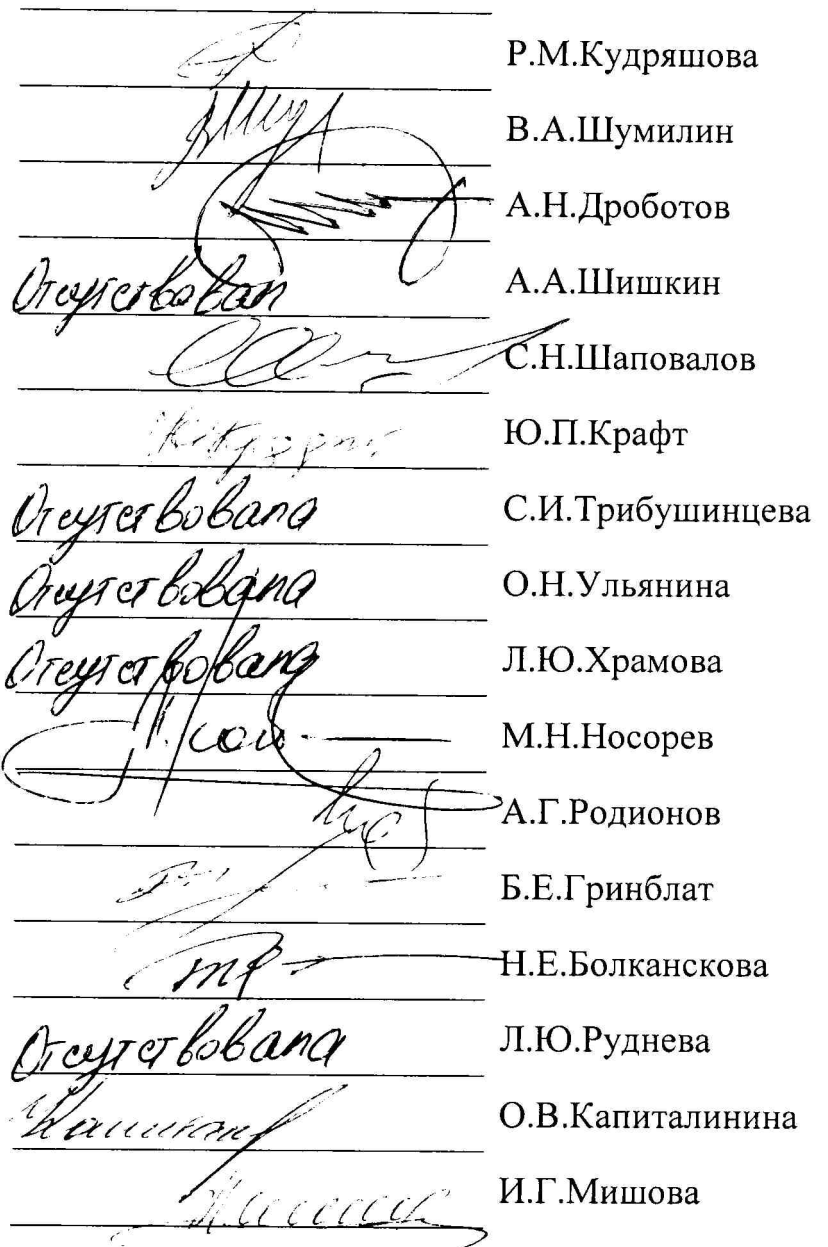 Р.М.Кудряшова
В.А.Шумилин
А.Н.Дроботов
Отсутствовал А.А.Шишкин
С.Н.Шаповалов
Ю.П.Крафт
Отсутствовала С.И.Трибушинцева
Отсутствовала О.Н.Ульянина
Отсутствовала Л.Ю.Храмова
М.Н.Носорев
А.Г.Родионов
Б.Е.Гринблат
Н.Е.Болканскова
Отсутствовала Л.Ю.Руднева
О.В.Капиталинина
И.Г.Мишова